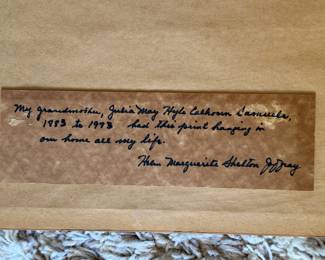 My grandmother, Julia May Hyle Calhoun Samuels,
1883 to 1973 had this print hanging in
our home all my life.
Helen Marguerite Shelton